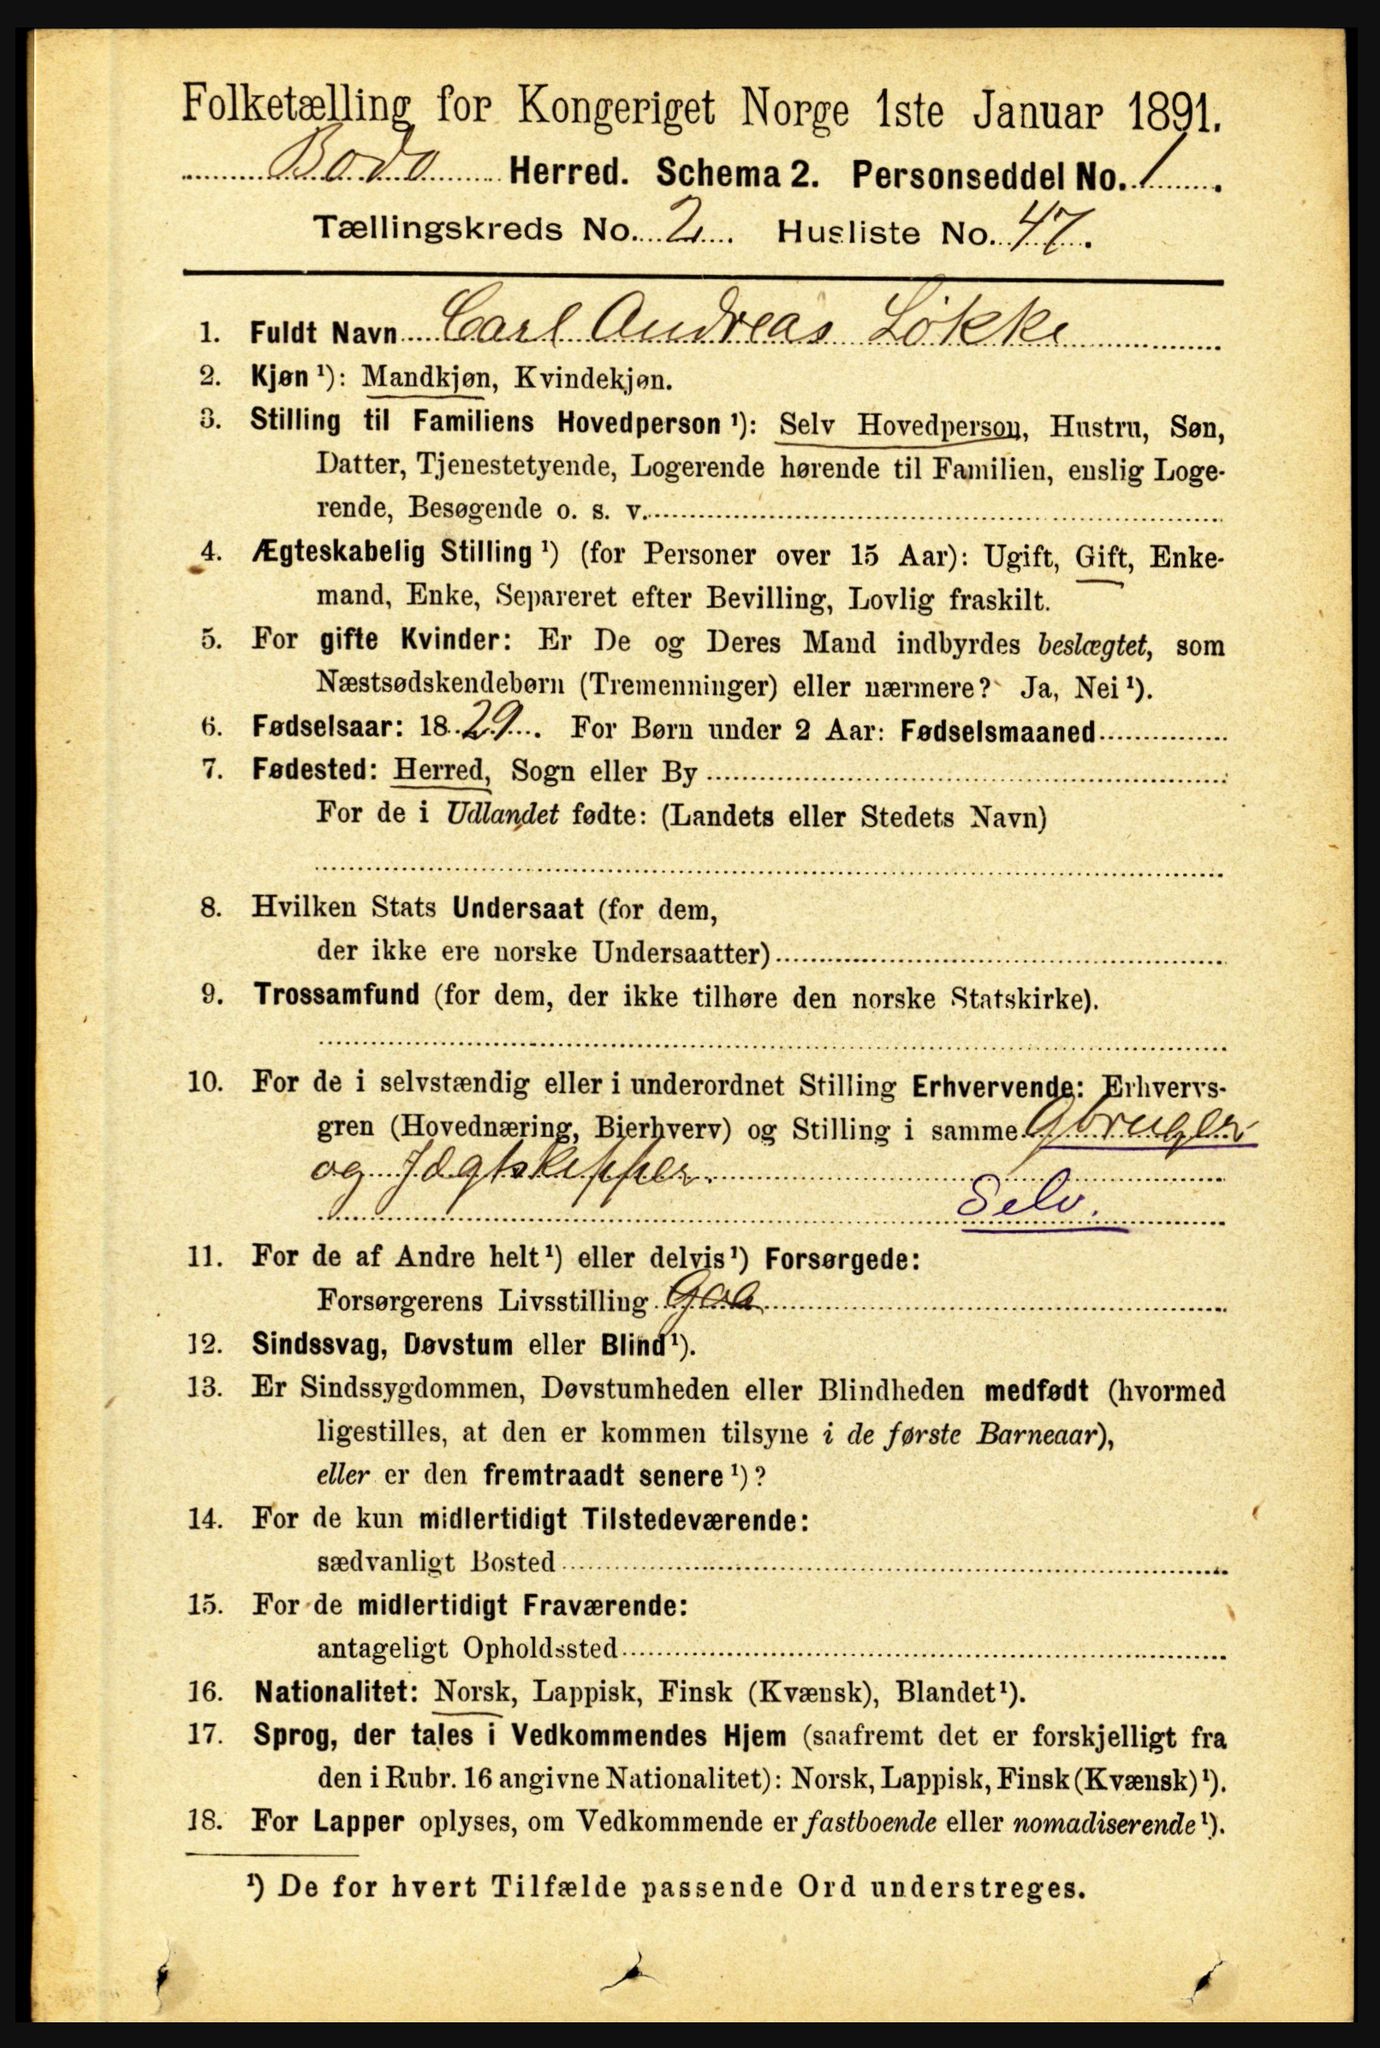 Folketælling for Kongeriget Norge 1ste Januar 1891.
Bodø Herred. Schema 2. Personseddel No. 1.
Tællingskreds No. 2. Husliste No. 47.
1. Fuldt Navn Carl Andreas Løkke
2. Kjøn ¹): Mandkjøn, Kvindekjøn.
3. Stilling til Familiens Hovedperson ¹): Selv Hovedperson, Hustru, Søn,
Datter, Tjenestetyende, Logerende hørende til Familien, enslig Loge-
rende, Besøgende o. s. v.
4. Ægteskabelig Stilling ¹) (for Personer over 15 Aar): Ugift, Gift, Enke-
mand, Enke, Separeret efter Bevilling, Lovlig fraskilt.
5. For gifte Kvinder: Er De og Deres Mand indbyrdes beslægtet, som
Næstsødskendebørn (Tremenninger) eller nærmere? Ja, Nei ¹).
6. Fødselsaar: 1829. For Børn under 2 Aar: Fødselsmaaned
7. Fødested: Herred, Sogn eller By
For de i Udlandet fødte: (Landets eller Stedets Navn)
8. Hvilken Stats Undersaat (for dem,
der ikke ere norske Undersaatter)
9. Trossamfund (for dem, der ikke tilhøre den norske Statskirke).
10. For de i selvstændig eller i underordnet Stilling Erhvervende: Erhvervs-
gren (Hovednæring, Bierhverv) og Stilling i samme Gbruger
og Jægtskipper.
Selv.
11. For de af Andre helt ¹) eller delvis ¹) Forsørgede:
Forsørgerens Livsstilling
12. Sindssvag, Døvstum eller Blind ¹).
13. Er Sindssygdommen, Døvstumheden eller Blindheden medfødt (hvormed
ligestilles, at den er kommen tilsyne i de første Barneaar),
eller er den fremtraadt senere ¹)?
14. For de kun midlertidigt Tilstedeværende:
sædvanligt Bosted
15. For de midlertidigt Fraværende:
antageligt Opholdssted
16. Nationalitet: Norsk, Lappisk, Finsk (Kvænsk), Blandet ¹).
17. Sprog, der tales i Vedkommendes Hjem (saafremt det er forskjelligt fra
den i Rubr. 16 angivne Nationalitet): Norsk, Lappisk, Finsk (Kvænsk) ¹).
18. For Lapper oplyses, om Vedkommende er fastboende eller nomadiserende ¹).
¹) De for hvert Tilfælde passende Ord understreges.